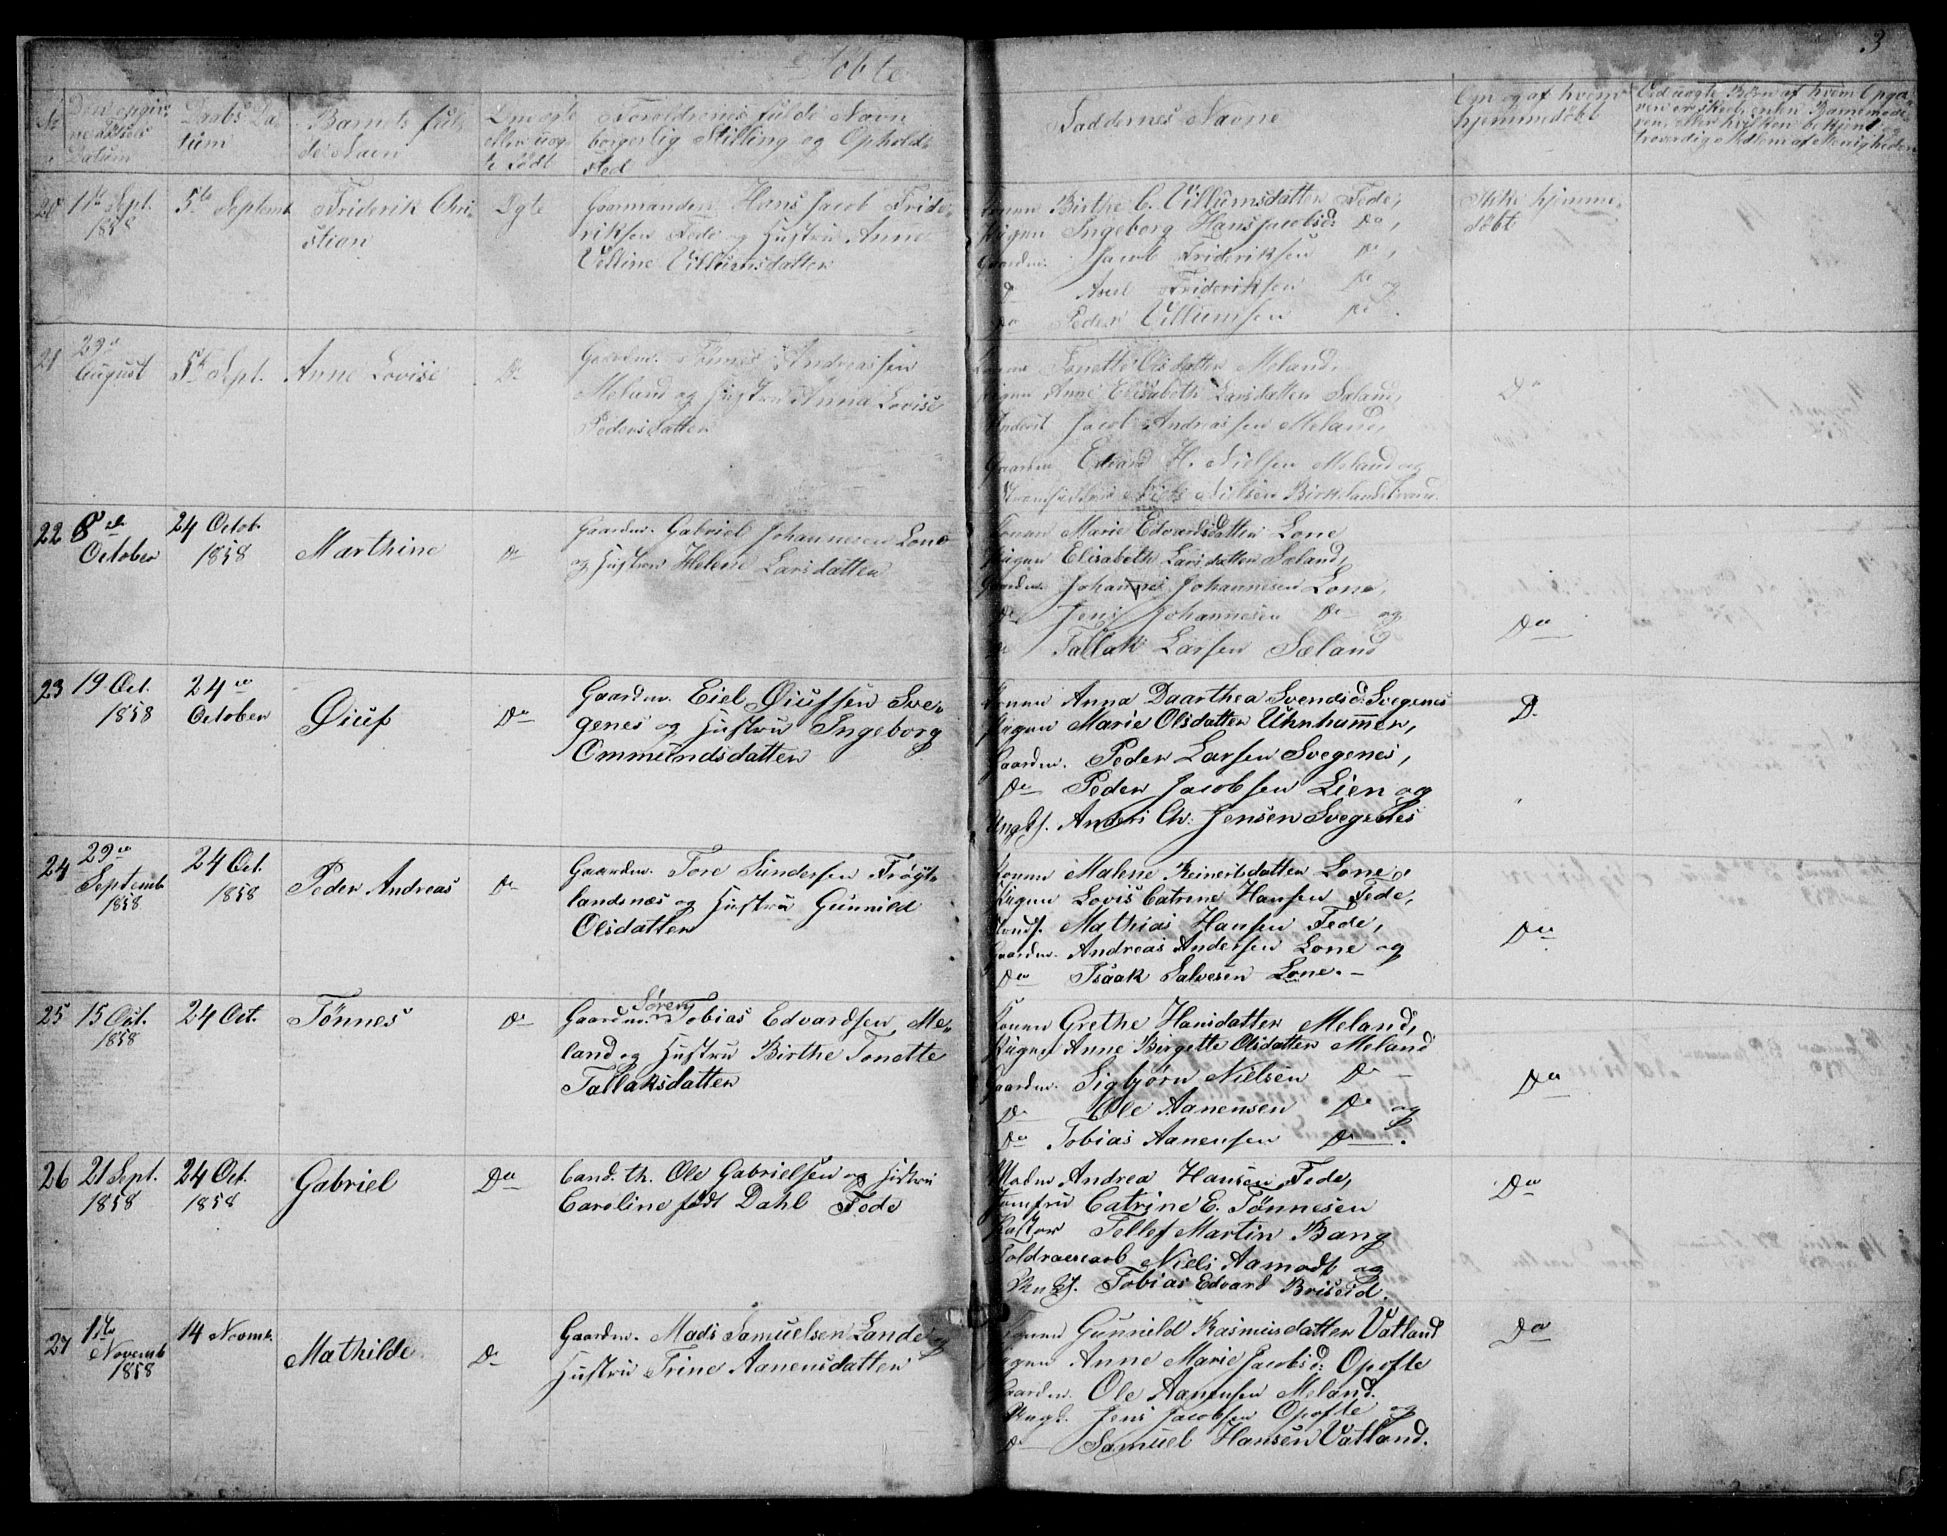 Døbte
3
No
Den opgiv-
ne Fødsels
Datum
Daabs Da-
tum
Barnets ful-
de Navn
Om ægte
eller uæg-
te Født
Forældrenes fulde Navn
borgerlig Stilling og Opholds
sted
Faddernes Navne
Om og af hvem
hjemmedøbt
Ved uægte Børn af hvem Opga-
ven er skeet, enten Barnemode-
ren, eller hvilken bekjendt
troværdig Medlem af Menigheden
20 1ste Sept.
1858
5te Septemb
Friderik Chri-
stian
Ægte
Gaarmanden Hans Jacob Fride-
riksen Fede og Hustru Anne
Velline Villumsdatter
Konen Birthe C. Villumsdatter Fede,
Pigen Ingeborg Hans Jacobsd: Do,
Gaardm. Jacob Frideriksen Do,
Do Axel Frideriksen Do og
Do Peder Villumsen Do.
Ikke hjemme-
døbt
21 29de
August
5te Sept.
Anne Lovise
Do
Gaardm. Tønnes Andreassen
Meland og Hustru Anna Lovise
Pedersdatter
Konen Tonette Olsdatter Meland,
Pigen Anne Elisabeth Larsdatter Sæland,
Jacob Andreassen Meland,
Gaardm Edvard H. Nielsen Meland og
Niels Nielsen
Do
22 8de
October
24 Octob.
1858
Marthine
Do
Gaardm. Gabriel Johannesen Lone
og Hustru Helene Larsdatter
Konen Marie Edvardsdatter Lone
Pigen Elisabeth Larsdatter Sæland,
Gaardm. Johannes Johannesen Lone,
Do Jens Johannesen Do og
Do Tallak Larsen Sæland
Do
23 19 Oct.
1858
24de
October
Øiuf
Do
Gaardm. Eiel Øiufsen Sve-
genes og Hustru Ingeborg
Ommundsdatter
Konen Anna Daarthea Svendsd: Svegenes
Pigen Marie Olsdatter Uhnhammer,
Gaardm. Peder Larsen Svegenes,
Do Peder Jacobsen Lien og
Ungk. Anders Chr. Jensen Svegenes
Do
24 29de
Septemb
1858
24 Oct.
1858
Peder Andreas
Do
Gaardm. Tore Sundersen Frøyt-
landsnæs og Hustru Gunnild
Olsdatter
Konen Malene Reinertsdatter Lone,
Pigen Lovis Catrine Hansen Fede,
Mathias Hansen Fede,
Gaardm. Andreas Andersen Lone og
Do Isaak Salvesen Lone. –
Do
25 15 Oct.
1858
24 Oct.
Tønnes
Do
Søren
Gaardm. Tobias Edvardsen Me-
land og Hustru Birthe Tonette
Tallaksdatter
Konen Grethe Hansdatter Meland,
Pigen Anne Birgette Olsdatter Meland
Gaardm. Sigbjørn Nielsen Do –
Do Ole Aanensen Do og
Do Tobias Aanensen Do.
Do
26 21 Sept.
1858
24 Oct.
1858
Gabriel
Do
Cand. th. Ole Gabrielsen og Hustru
Caroline født Dahl Fede
Madm Andrea Hansen Fede,
Jomfru Catrine E. Tønnesen
Pastor Tellef Martin Bang
Niels Aamodt og
Ungk. Tobias Edvard Briseid
Do
27 1ste
Novemb
1858
14 Novmb.
Mathilde
Do
Gaardm. Mads Samuelsen Lande og
Hustru Trine Aanensdatter
Konen Gunnild Rasmusdatter Vatland
Pigen Anne Marie Jacobsd: Opofte
Gaardm. Ole Aanensen Meland.
Ungk. Jens Jacobsen Opofte og
Do Samuel Hansen Vatland.
Do